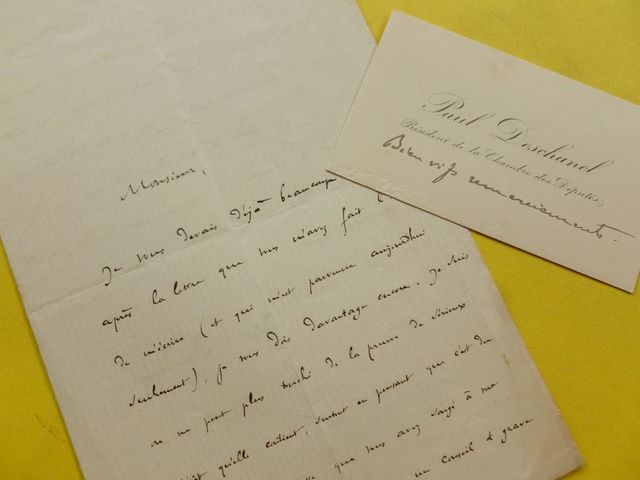 Monsieur,
Je vous devais déjà beaucoup
après la lettre que vous m'avez fait
de m'écrire (et qui m'est parvenue aujourd'hui
seulement), je vous dois davantage encore. Je suis
on ne peut plus touché de la preuve de sérieux
qu'elle contient, surtout en pensant que c'est du
que vous avez songé à me
un conseil & grave
Paul Deschanel
Président de la Chambre des Députés,
Bien vifs remerciements.